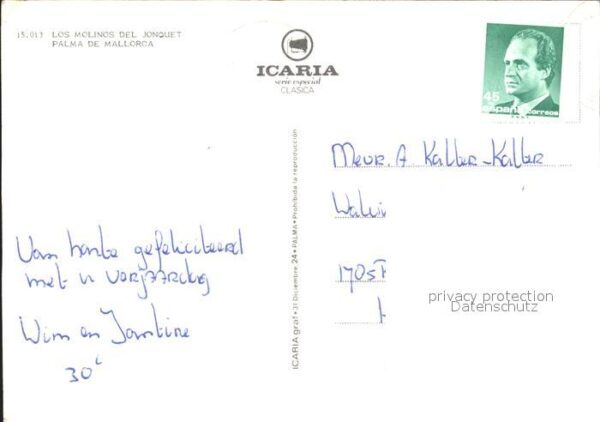 15.013 LOS MOLINOS DEL JONQUET
PALMA DE MALLORCA
ICARIA
serie especial
CLASICA
45
España correos
ICARIA graf • 31 Diciembre 24 • PALMA • Prohibida la reproducción
Mevr. A Kaller-Kaller
privacy protection
Datenschutz
Van harte gefeliciteerd
met u verjaardag
Wim en Jantine
30